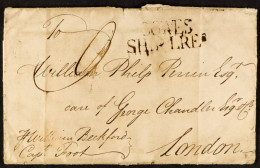 To
SHIP LRE
William Philp Perrin Esqr.
care of George Chandler Esqr.
London
Capt. Frost